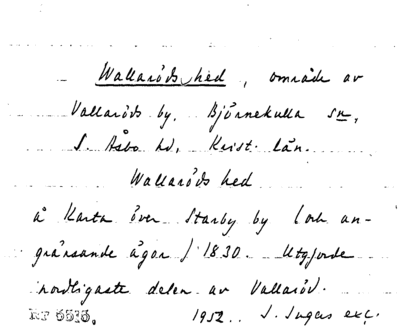 Wallaröds hed, område av
Vallaröds by. Björnekulla sn,
S. Åsbo hd, Krist. län.
Wallaröds hed
å Karta över Starby by (och an-
gränsande ägor) 1830. Utgjorde
nordligaste delen av Vallaröd.
RF 5515. 1952. S. Ingers exc.